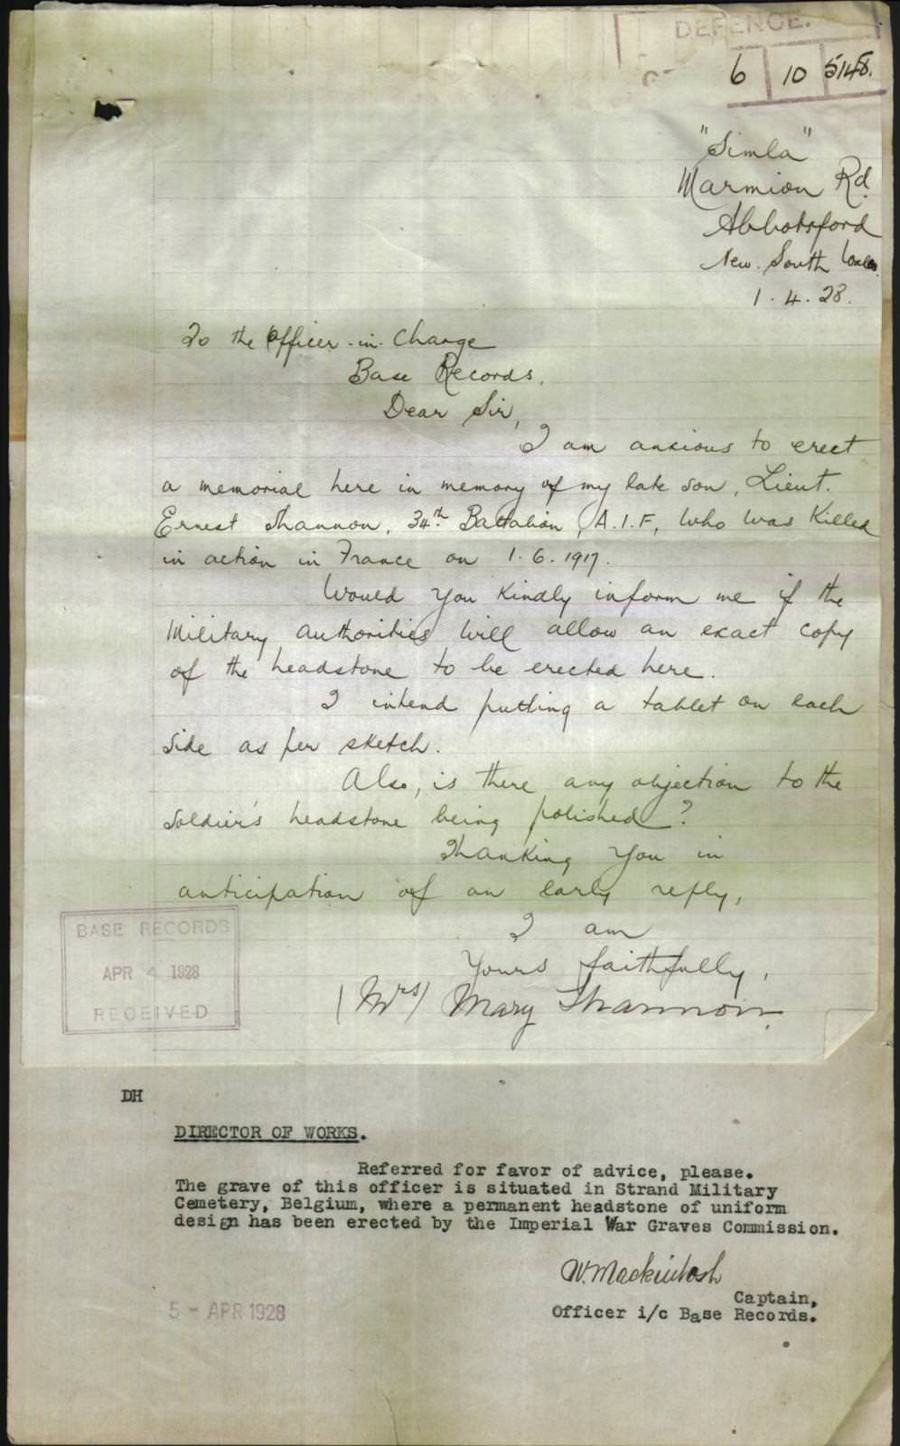 DEFENCE.
6 10 5148.
"Simla"
Marmion Rd.
Abbotsford
New. South Wales.
1. 4. 28.
To the Officer-in-Charge
Base Records.
Dear Sir,
I am anxious to erect
a memorial here in memory of my late son, Lieut.
Ernest Shannon, 34th Battalion, A.I.F, who was killed
in action in France on 1.6.1917.
Would you kindly inform me if the
Military authorities will allow an exact copy
of the headstone to be erected here.
I intend putting a tablet on each
side as per sketch.
Also, is there any objection to the
soldier's headstone being polished?
Thanking you in
anticipation of an early reply,
I am
Yours faithfully,
(Mrs) Mary Shannon.
BASE RECORDS
APR 4 1928
RECEIVED
DH
DIRECTOR OF WORKS.
Referred for favor of advice, please.
The grave of this officer is situated in Strand Military
Cemetery, Belgium, where a permanent headstone of uniform
design has been erected by the Imperial War Graves Commission.
W. Mackintosh
Captain,
Officer i/c Base Records.
5 - APR 1928